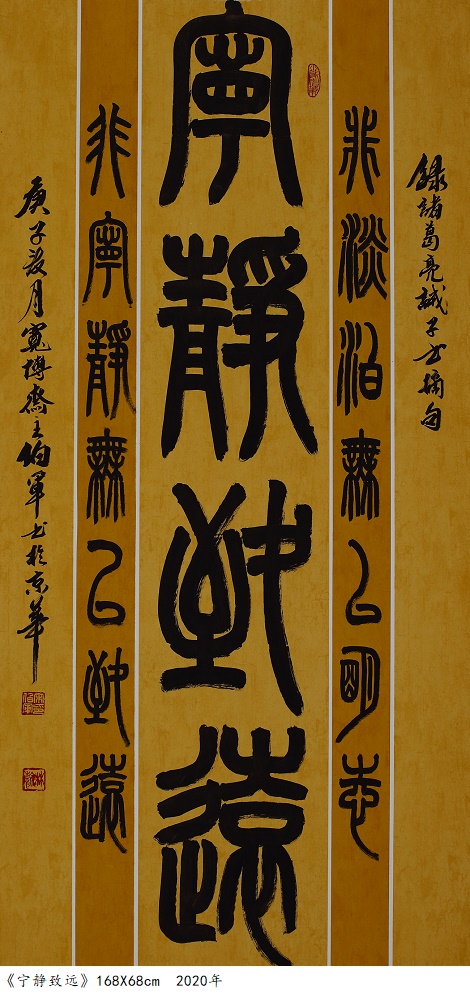 錄諸葛亮誡子書摘句
非淡泊無以明志
寧靜致遠
非寧靜無以致遠
庚子月寬博齋伯軍書於京華
《宁静致远》168X68cm 2020年